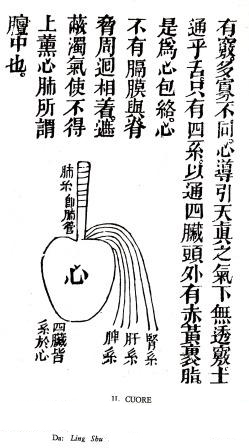 有竅多寡不同心導引天真之氣下無透竅上
通乎舌只有四系以通四臟頭外有赤黃裹脂
是爲心包絡心
不有膈膜與脊
脅周迴相着遮
蔽濁氣使不得
上薰心肺所謂
膻中也。
肺系即肺管
心
腎系
肝系
脾系
四臟皆
系於心
11. CUORE
Da: Ling Shu